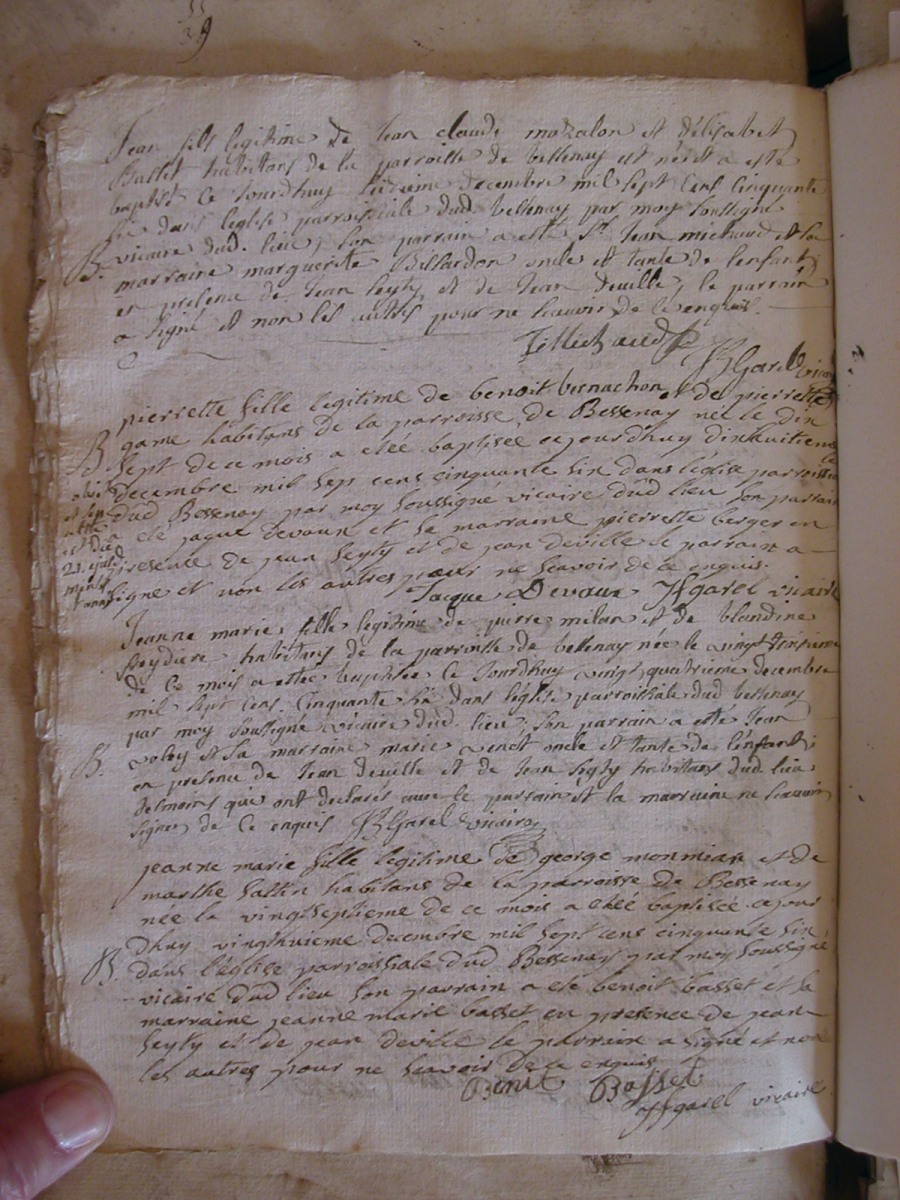 29
Jean fils legitime de Jean claude mazalon et délisabet
Ballet habitans de la parroisse de bessenay est né et a esté
baptisé ce Jourdhuy seizieme decembre mil sept cens cinquante
six dans léglise parroissiale dud. bessenay par moy soussigné
vicaire dud. lieu, son parrain a esté Sr. Jean michaud et sa
B. marraine marguerite Billardon oncle et tante de lenfant
en presence de Jean seyty et de Jean deville, le parrain
a signé et non les autres pour ne scauoir de ce enquis.
JMichaud JfGarel vicaire
pierrette fille legitime de benoit bernachon et de pierrette
B game habitans de la parroisse de Bessenay née le dix
sept de ce mois a etéé baptisée cejourdhuy dixhuitieme
decembre mil sep cens cinquante six dans léglise parroissialle
dud Bessenay par moy soussigné vicaire dud lieu son parrain
a eté jaque devaux et sa marraine pierrette berger en
presence de jean seyty et de jean deville le parrain a
signé et non les autres pour ne scavoir de ce enquis.
Jacque Devaux Jfgarel vicaire
Jeanne marie fille legitime de pierre milan et de blandine
peydiere habitans de la parroisse de bessenay née le vingt troisieme
de ce mois a estée baptisée ce Jourdhuy vingt quatrieme decembre
mil sept cens cinquante six dans léglise parroissiale dud bessenay
par moy soussigné vicaire dud. lieu, son parrain a esté Jean
B. et sa marraine marie oncle et tante de lenfant;
en presence de Jean deville et de Jean seyty habitans dud. lieu
tesmoins qui ont declarés avec le parrain et la marraine ne scauoir
signer de ce enquis JfGarel vicaire
jeanne marie fille legitime de george monmian et de
marthe saltin habitans de la parroisse de Bessenay
née le vingtseptieme de ce mois a etéé baptisée cejour
dhuy vingthuitieme decembre mil sept cens cinquante six
B. dans l'église parroissiale dud Bessenay par moy soussigné
vicaire dud lieu son parrain a eté benoit basset et sa
marraine jeanne marie basset en presence de jean
seyty et de jean deville le parrain a signé et non
les autres pour ne scavoir de ce enquis
Benoit Basset
Jfgarel vicaire